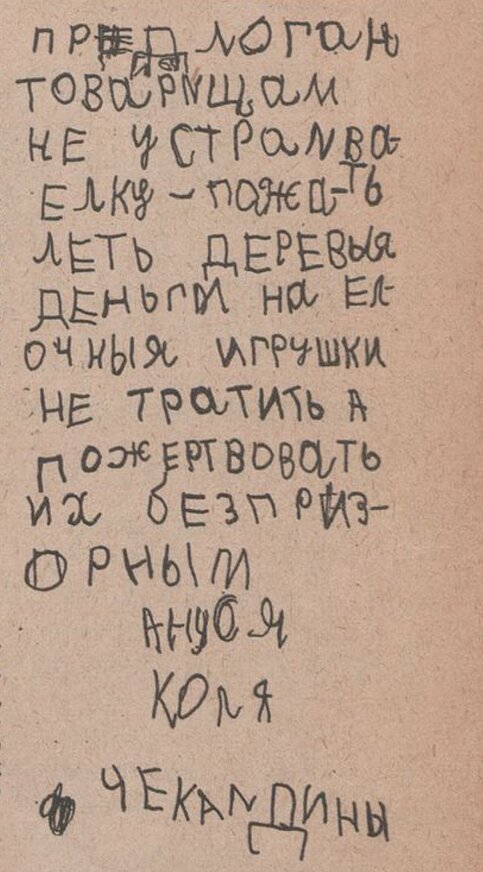 ПРЕДЛОГАЮ
ТОВАРИЩАМ
НЕ УСТРАИВА-
ТЬ
ЕЛКУ – ПОЖА-
ЛЕТЬ ДЕРЕВЫЯ
ДЕНЬГИ НА ЕЛ-
ОЧНЫЯ ИГРУШКИ
НЕ ТРАТИТЬ А
ПОЖЕРТВОВАТЬ
ИХ БЕЗПРИЗ-
ОРНЫМ
КОЛЯ